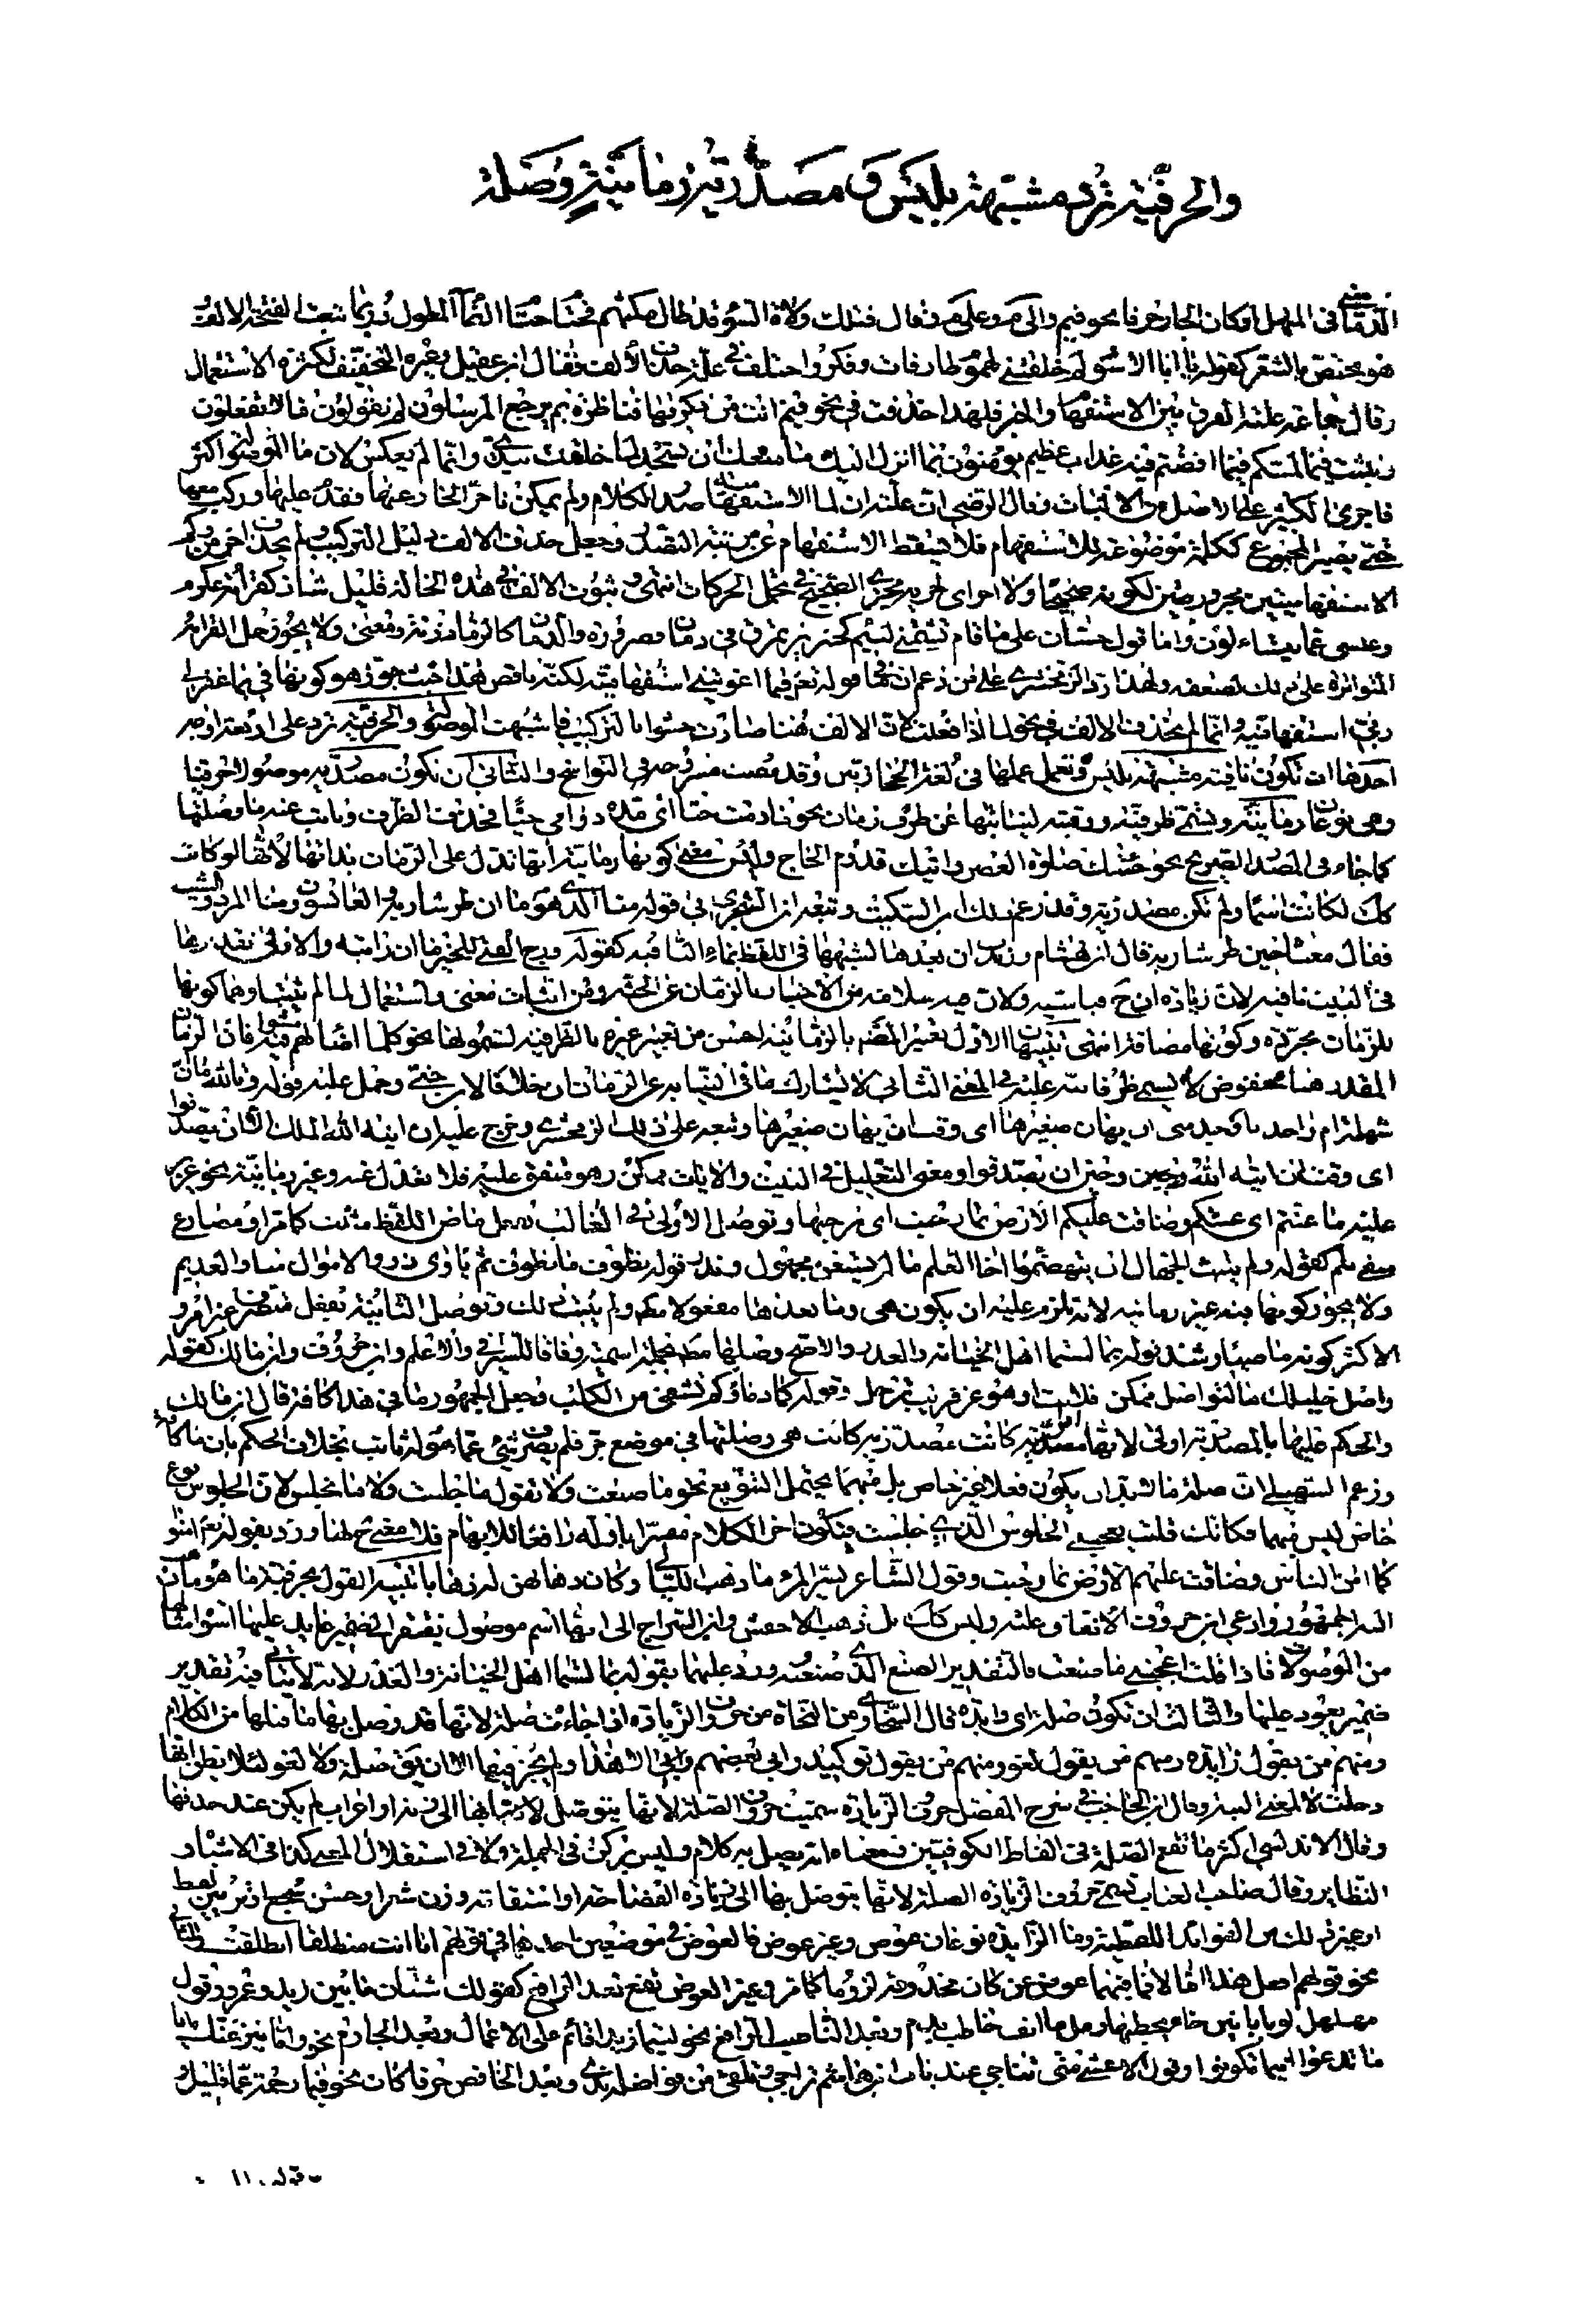 والحرفية ترد مشبهة بليس و مصدرية زمانية وصلة
في المنهل او كان الجار حرفا نحو فيم والى م وعلى م قال فتلك ولاة السوء قد طال مكثهم فحتام حتام العناء المطول وربما تبعت الفتحة الالف
هو مختص بالشعر كقوله يا ابا الاسود لم خلفتني لهموم طارقات وذكر واختلف في علة حذف الألف فقال ابن عقيل وغيره التخفيف لكثرة الاستعمال
وقال جماعة علته الفرق بين الاستفهام والخبر فلهذا حذفت في نحو فيم انت من ذكرها فناظرة بم يرجع المرسلون لم تقولون ما لا تفعلون
وثبتت في لمسكم فيما افضتم فيه عذاب عظيم يؤمنون بما انزل اليك ما منعك ان تسجد لما خلقت بيدي وانما لم يعكس لان ما الخبرية اكثر
فاجري الكثير على الاصل من الاثبات وقال الرضي ان علته ان لما الاستفهام صدر الكلام ولم يمكن تأخر الجار عنها فقدم عليها وركب معها
حتى يصير المجموع ككلمة موضوعة للاستفهام فلا يسقط الاستفهام عن مرتبة التصدر وجعل حذف الالف دليل التركيب ولم يحذف اخر من وكم
الاستفهاميتين مجرورتين لكونه صحيحا ولا اخر اي لجريه مجرى الصحيح في تحمل الحركات انتهى وثبوت الالف في هذه الحالة قليل شاذ كقراءة عكرمة
وعيسى عما يتساءلون واما قول حسان على ما قام يشتمني لئيم كخنزير تمرغ في دمان فضرورة والدمان كالرماد وزنا ومعنى ولا يجوز حمل القراءة
المتواترة على ذلك لضعفه ولهذا رد الزمخشري على من زعم ان في قوله تعالى فيما اغويتني استفهامية لكنه ناقض هذا حيث جوز هو كونها في بما غفر لي
ربي استفهامية وانما لم تحذف الالف في نحو لماذا فعلت لان الالف هنا صارت حشوا بالتركيب فاشبهت الموصولة والحرفية ترد على اربعة اوجه
احدها ان تكون نافية مشبهة بليس وتعمل عملها في لغة الحجازيين وقد مضت مشروحة في النواسخ والثاني ان تكون مصدرية موصولا حرفيا
وهي نوعان زمانية وتسمى ظرفية ووقتية لنيابتها عن ظرف زمان نحو ما دمت حيا اي مدة دوامي حيا فحذف الظرف ونابت عنه ما وصلتها
كما جاء في المصدر الصريح نحو جئتك صلوة العصر واتيك قدوم الحاج وليس معنى كونها زمانية انها تدل على الزمان بذاتها لأنها لو كانت
كذلك لكانت اسما ولم تكن مصدرية وقد زعم ذلك ابن السكيت وتبعه ابن الشجري في قوله منا الذي هو ما ان طر شاربه والعانسون ومنا المرد والشيب
فقال معناه حين طر شاربه قال ابن هشام وزيدت ان بعدها لشبهها في اللفظ بما النافية كقوله ورج الفتى للخير ما ان رايته والاولى تقدير ما
في البيت نافية لان زيادة ان ح قياسية ولان فيه سلامة من الاخبار بالزمان عن الجثة ومن اثبات معنى واستعمال لما لم يثبتا وهما كونها
للزمان مجردة وكونها مضافة انتهى تنبيهان الاول تعبير المصنف بالزمانية احسن من تعبير غيره بالظرفية لشمولها نحو كلما اضاء لهم مشوا فيه فان الزمان
المقدر هنا مخفوض لا يسمى ظرفا نبه عليه في المغني الثاني لا يشارك ما في النيابة عن الزمان ان خلافا لابن جني وحمل عليه قوله وتالله ما ان
شهلة ام واحد باوجد مني ان يهان صغيرها اي وقت ان يهان صغيرها وتبعه على ذلك الزمخشري وخرج عليه ان اتيه الله الملك الا ان يصدقوا
اي وقت ان اتيه الله وحين ان يصدقوا ومعنى التعليل في البيت والايات ممكن وهو متفق عليه فلا يعدل عنه وغير زمانية نحو عزيز
عليه ما عنتم اي عنتكم وضاقت عليكم الارض بما رحبت اي برحبها وتوصل الأولى في الغالب بفعل ماض اللفظ مثبت كما مر او مضارع
منفي بلم كقوله ولم يلبث الجهال ان يتهضموا اخا الحلم ما لم يستعن بجهول وندر قوله نطوف ما نطوف ثم يأوي ذوو الاموال منا والعديم
ولا يجوز كونها فيه غير زمانية لانه يلزم عليه ان يكون هي وما بعدها مفعولا مطلقا ولم يثبت ذلك وتوصل الثانية بفعل متصرف غير امر و
الاكثر كونه ماضيا وشذ قوله بما لستما اهل الخيانة والغدر والاصح وصلها مطلقا بجملة اسمية وفاقا للسيرافي والاعلم وابن خروف وابن مالك كقوله
واصل خليلك ما التواصل ممكن فلانت او هو عن قريب ترحل وقوله كما دماؤكم تشفي من الكلب وجعل الجمهور ما في هذا كافة قال ابن مالك
والحكم عليها بالمصدرية اولى لانها مصدرية كانت هي وصلتها في موضع جر فلم يصرف شيء عما هو له ثابت بخلاف الحكم بان ما كافة
وزعم السهيلي ان صلة ما لا بد ان يكون فعلا غير خاص بل مبهما يحتمل التنويع نحو ما صنعت ولا تقول ما جلست ولا ما تجلس لان الجلوس نوع
خاص ليس مبهما فكانك قلت يعجبني الجلوس الذي جلست فيكون اخر الكلام مفسرا باوله رافعا للابهام فلا معنى لها ورد بقوله تعالى امنوا
كما امن الناس وضاقت عليهم الارض بما رحبت وقول الشاعر يسر المرء ما ذهب الليالي وكان ذهابهن له ذهابا تنبيه القول بحرفية ما هو مذهب
الجمهور وادعى ابن خروف الاتفاق عليه وليس كذلك بل ذهب الاخفش وابن السراج الى انها اسم موصول يفتقر الى ضمير عايد عليها اسوة امثالها
من الموصولات فاذا قلت اعجبني ما صنعت فالتقدير الصنع الذي صنعته ورد عليهما بقوله بما لستما اهل الخيانة والغدر لانه لا يتأتى فيه تقدير
ضمير يعود عليها والثالث ان تكون صلة اي زايدة قال السخاوي ومن النحاة من حروف الزيادة اذا جاءت صلة لانها قد وصل بها ما قبلها من الكلام
ومنهم من يقول زايدة ومنهم من يقول لغو ومنهم من يقول توكيد وابى بعضهم الا هذا ولم يجز فيها ان يقال صلة ولا لغو لئلا يظن انها
دخلت لا لمعنى البتة وقال ابن الحاجب في شرح المفصل حروف الزيادة سميت حروف الصلة لانها يتوصل بها الى زنة او اعراب لم يكن عند حذفها
وقال الاندلسي اكثر ما تقع الصلة في الفاظ الكوفيين ومعناه انه يصل به كلام وليس بركن في الجملة ولا في استقلال المعنى كذا في الاشباه و
النظاير وقال صاحب العباب تسمى حروف الزيادة الصلة لانها يتوصل بها الى زيادة الفصاحة او استقامة وزن شعر او حسن سجع او تزيين لفظ
او غير ذلك من الفوائد اللفظية وما الزايدة نوعان عوض وغير عوض فالعوض في موضعين احدها في قولهم اما انت منطلقا انطلقت والثاني
نحو قولهم افعل هذا اما لا فما فيهما عوض عن كان محذوفة لزوما كما مر وغير العوض تقع بعد الرافع كقولك شتان ما بين زيد وعمرو وقول
مهلهل لو بابانين جاء يخطبها رمل ما انف خاطب بدم وبعد الناصب الرافع نحو ليتما زيدا قائم على الاعمال وبعد الجازم نحو واما ينزغنك ايا
ما تدعوا اينما تكونوا وقول الاعشى متى ما تناخي عند باب ابن هاشم تراحي وتلقي من فواضله ندى وبعد الخافض حرفا كان نحو فبما رحمة عما قليل